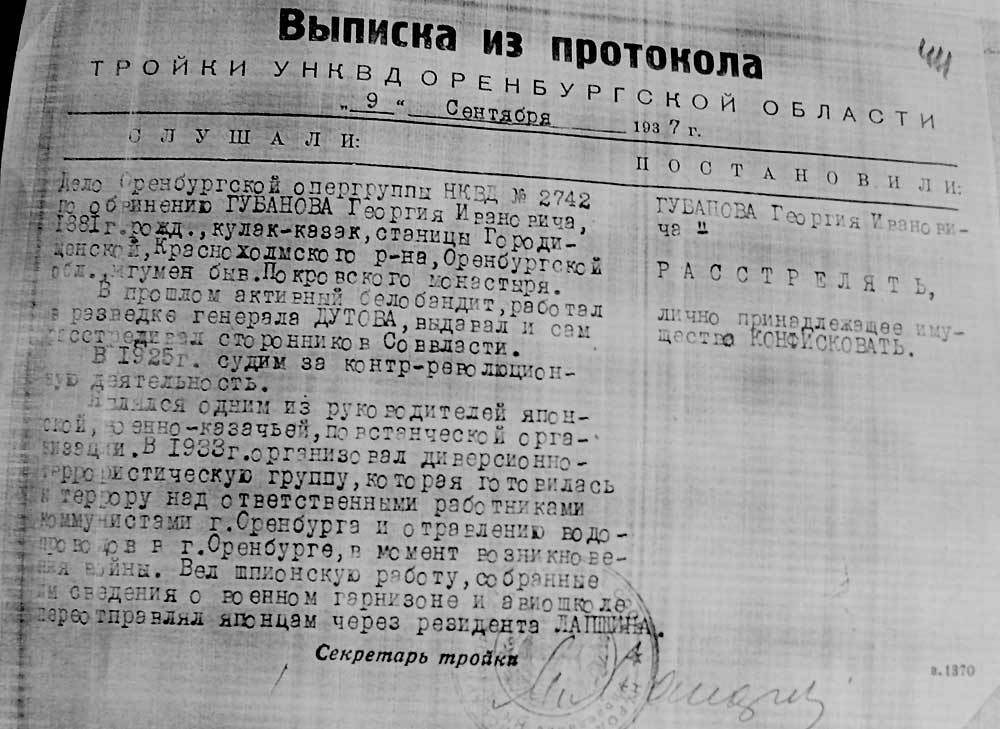 Выписка из протокола
ТРОЙКИ УНКВД ОРЕНБУРГСКОЙ ОБЛАСТИ
„ 9 “ Сентября 1937 г.
СЛУШАЛИ:
Дело Оренбургской опергруппы НКВД № 2742
по обвинению ГУБАНОВА Георгия Ивановича,
1881г.рожд.,кулак-казак,станицы Городи-
щенской,Краснохолмского р-на,Оренбургской
обл.,игумен быв.Покровского монастыря.
В прошлом активный белобандит,работал
в разведке генерала ДУТОВА,выдавал и сам
расстреливал сторонников Соввласти.
В 1925г. судим за контр-революцион-
ную деятельность.
Являлся одним из руководителей япон-
ской,военно-казачьей,повстанческой орга-
низации.В 1933г.организовал диверсионно-
террористическую группу,которая готовилась
к террору над ответственными работниками
коммунистами г.Оренбурга и отравлению водо-
проводов в г.Оренбурге,в момент возникнове-
ния войны. Вел шпионскую работу,собранные
им сведения о военном гарнизоне и авиошколе
переотправлял японцам через резидента ЛАПШИНА.
ПОСТАНОВИЛИ:
ГУБАНОВА Георгия Иванови-
ча "
РАССТРЕЛЯТЬ,
лично принадлежащее иму-
щество КОНФИСКОВАТЬ.
Секретарь тройки
в.1370